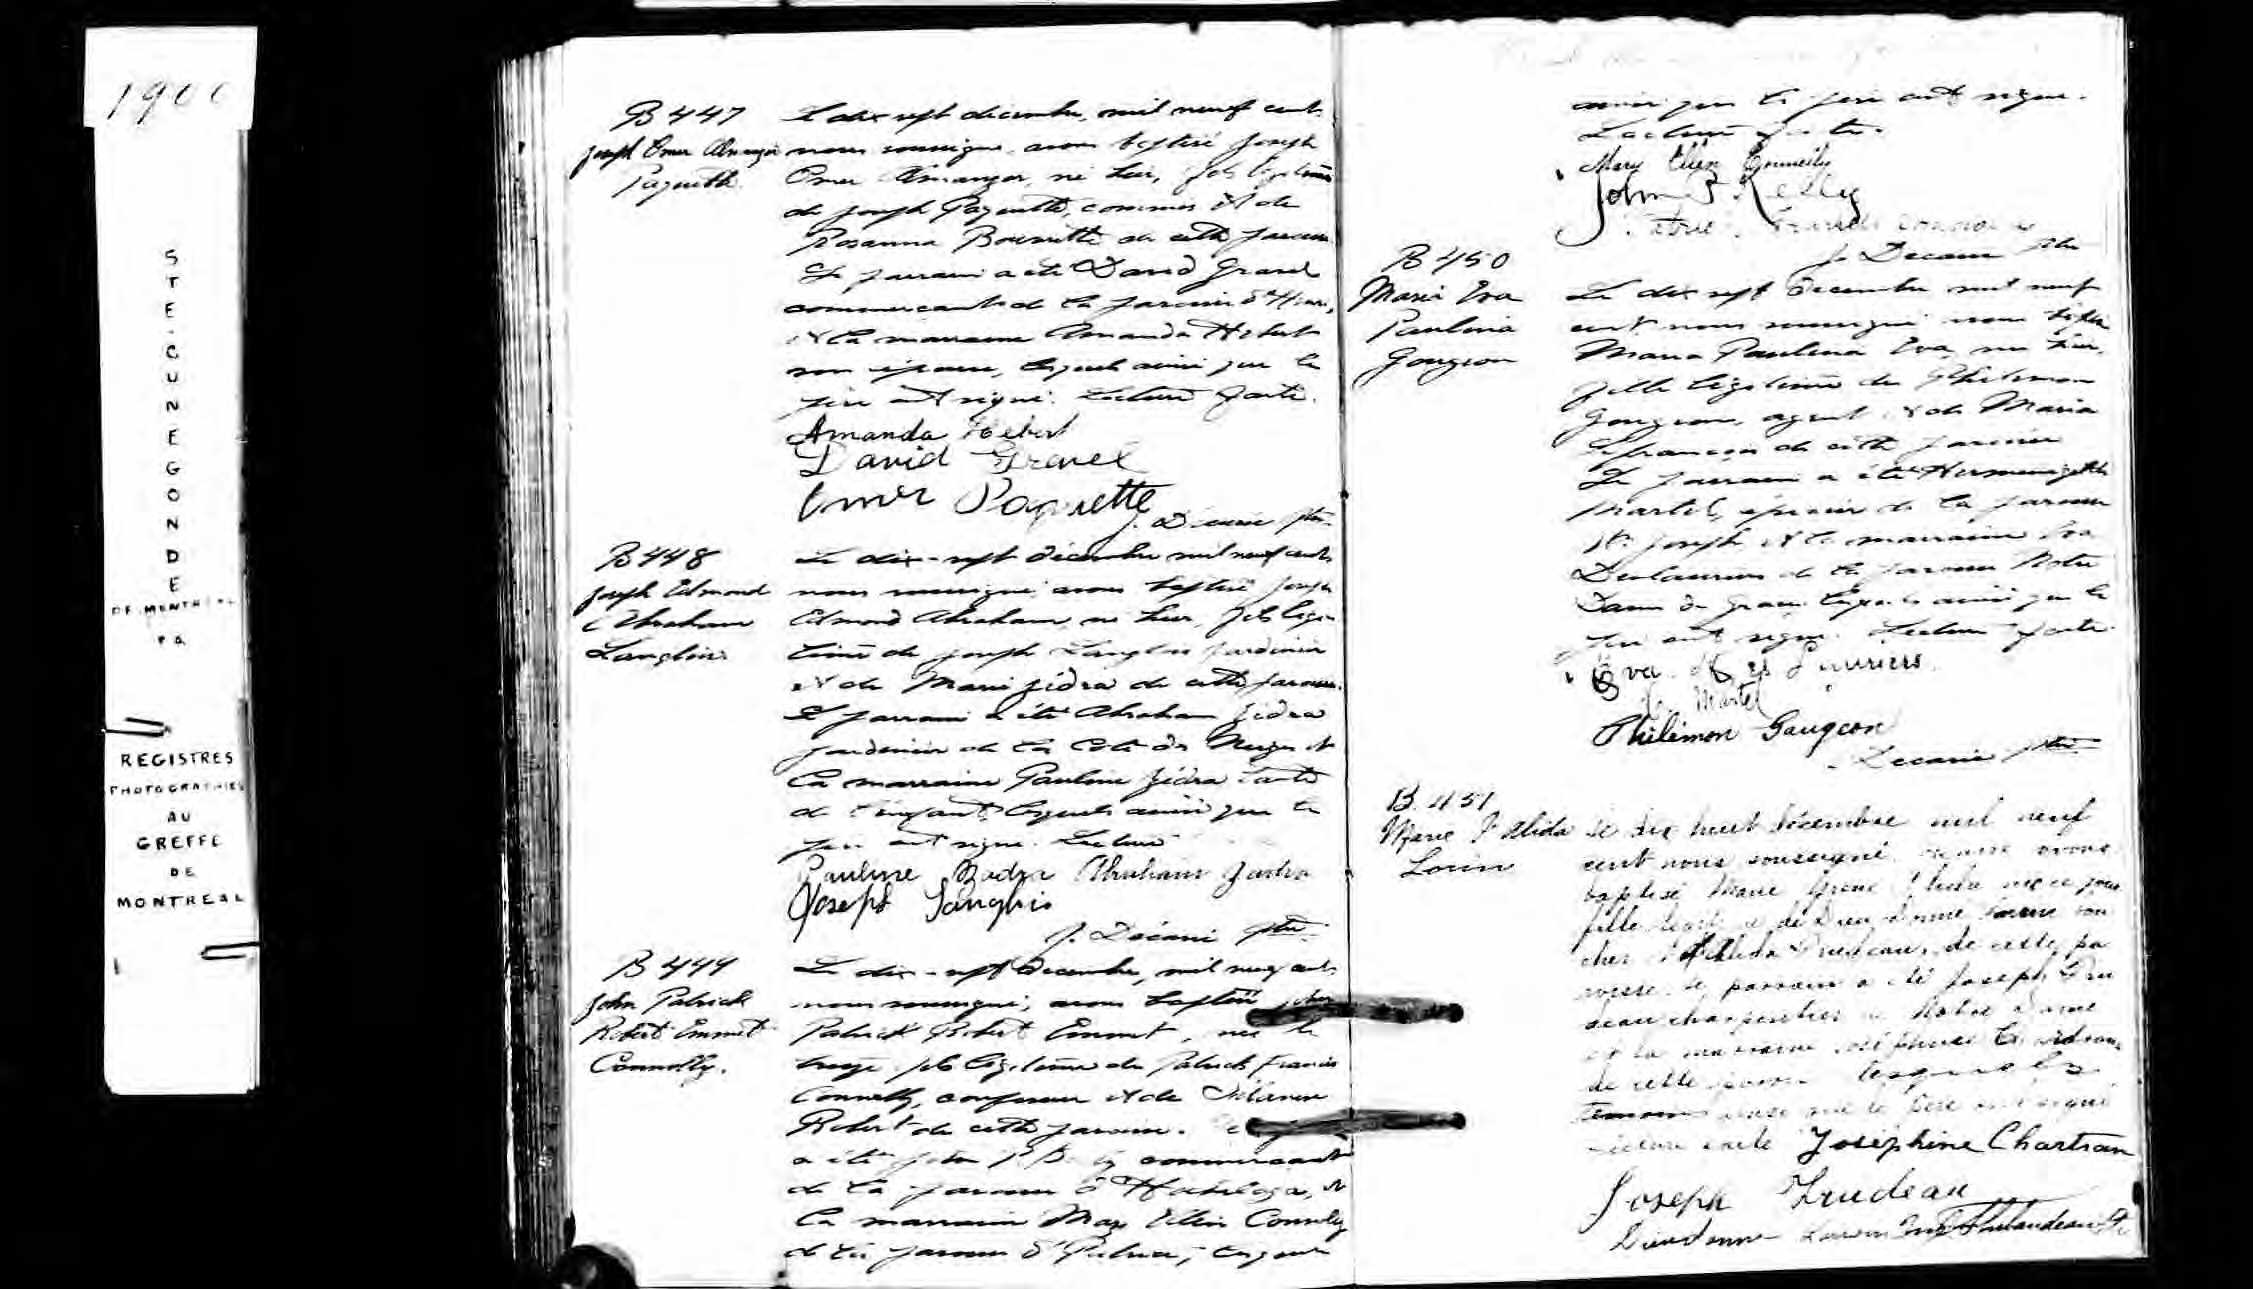 1900
STE-CUNEGONDE
DE MONTREAL
P.Q.
REGISTRES
PHOTOGRAPHIES
AU
GREFFE
DE
MONTREAL
B 447
Joseph Omer Almanzor
Paquette
Le dix sept décembre, mil neuf cent
nous soussigné avons baptisé Joseph
Omer Almanzor, né hier, fils légitime
de Joseph Paquette, commis et de
Rosanna de cette paroisse
Le parrain a été David Gravel
commerçant de la paroisse
et la marraine Amanda Hebert
son épouse, lesquels ainsi que le
père ont signé. Lecture faite.
Amanda Hebert
David Gravel
Omer Paquette
J. Décarie ptre
B 448
Joseph Edmond
Abraham
Langlois
Le dix-sept décembre mil neuf cent
nous soussigné avons baptisé Joseph
Edmond Abraham, né hier, fils légi-
time de Joseph Langlois jardinier
et de Marie de cette paroisse.
Le parrain a été Abraham
jardinier de la Cote des Neiges et
la marraine Pauline tante
de l'enfant lesquels ainsi que le
père ont signé. Lecture
Pauline Abraham
Joseph Langlois
J. Décarie ptre
B 449
John Patrick
Robert Emmet
Connolly.
Le dix-sept décembre, mil neuf cent
nous soussigné, avons baptisé John
Patrick Robert Emmet, né le
treize fils légitime de Patrick Francis
Connolly, et de
Robert de cette paroisse. Le
a été John commerçant
de la paroisse d'Hochelaga, et
la marraine Mary Ellen Connolly
de la paroisse lesquels
ainsi que le père ont signé.
Lecture faite.
Mary Ellen Connolly
John P Kelly
Patrick Francis Connolly
J. Décarie ptre
B 450
Maria Eva
Paulina
Gougeon
Le dix sept décembre mil neuf
cent nous soussigné avons baptisé
Maria Paulina Eva, née hier,
fille légitime de Philemon
Gougeon, agent et de Maria
Lefrançois de cette paroisse
Le parrain a été Hermenegilde
Martel, épicier de la paroisse
St. Joseph et la marraine Eva
Deslauriers de la paroisse Notre
Dame de Grace lesquels ainsi que le
père ont signé. Lecture faite.
Eva Des Lauriers
Martel
Philémon Gougeon
Décarie ptre
B. 451
Marie Alida
Lorin
Le dix huit décembre mil neuf
cent nous soussigné avons
baptisé Marie Alida née ce jour
fille de Dieudonné bou
cher et Alida Trudeau, de cette pa
roisse. Le parrain a été Joseph Tru
deau charpentier Notre Dame
et la marraine Joséphine
de cette paroisse lesquels
ainsi que le père ont signé
Lecture faite Joséphine Chartran
Joseph Trudeau
Dieudonne